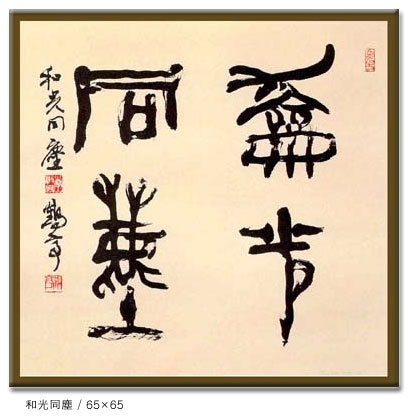 龢光
同塵
和光同塵
和光同塵 / 65×65